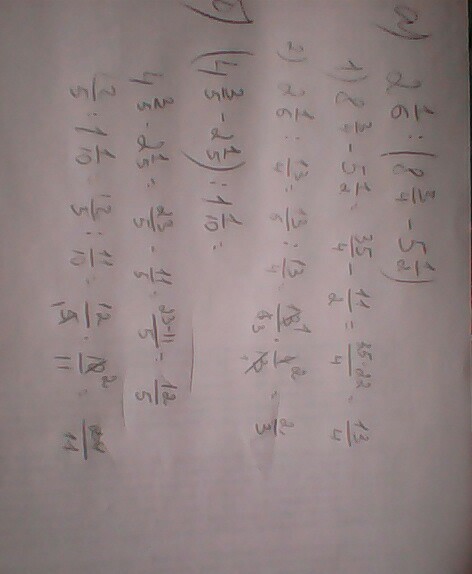 а) 2 1/6 : (8 3/4 - 5 1/2)
1) 8 3/4 - 5 1/2 = 35/4 - 11/2 = 35-22/4 = 13/4
2) 2 1/6 : 13/4 = 13/6 : 13/4 = 13 1/6 3 · 4 2/13 1 = 2/3
б) (4 3/5 - 2 1/5) : 1 1/10 =
4 3/5 - 2 1/5 = 23/5 - 11/5 = 23-11/5 = 12/5
12/5 : 1 1/10 = 12/5 : 11/10 = 12/1 5 · 10 2/11 = 24/11